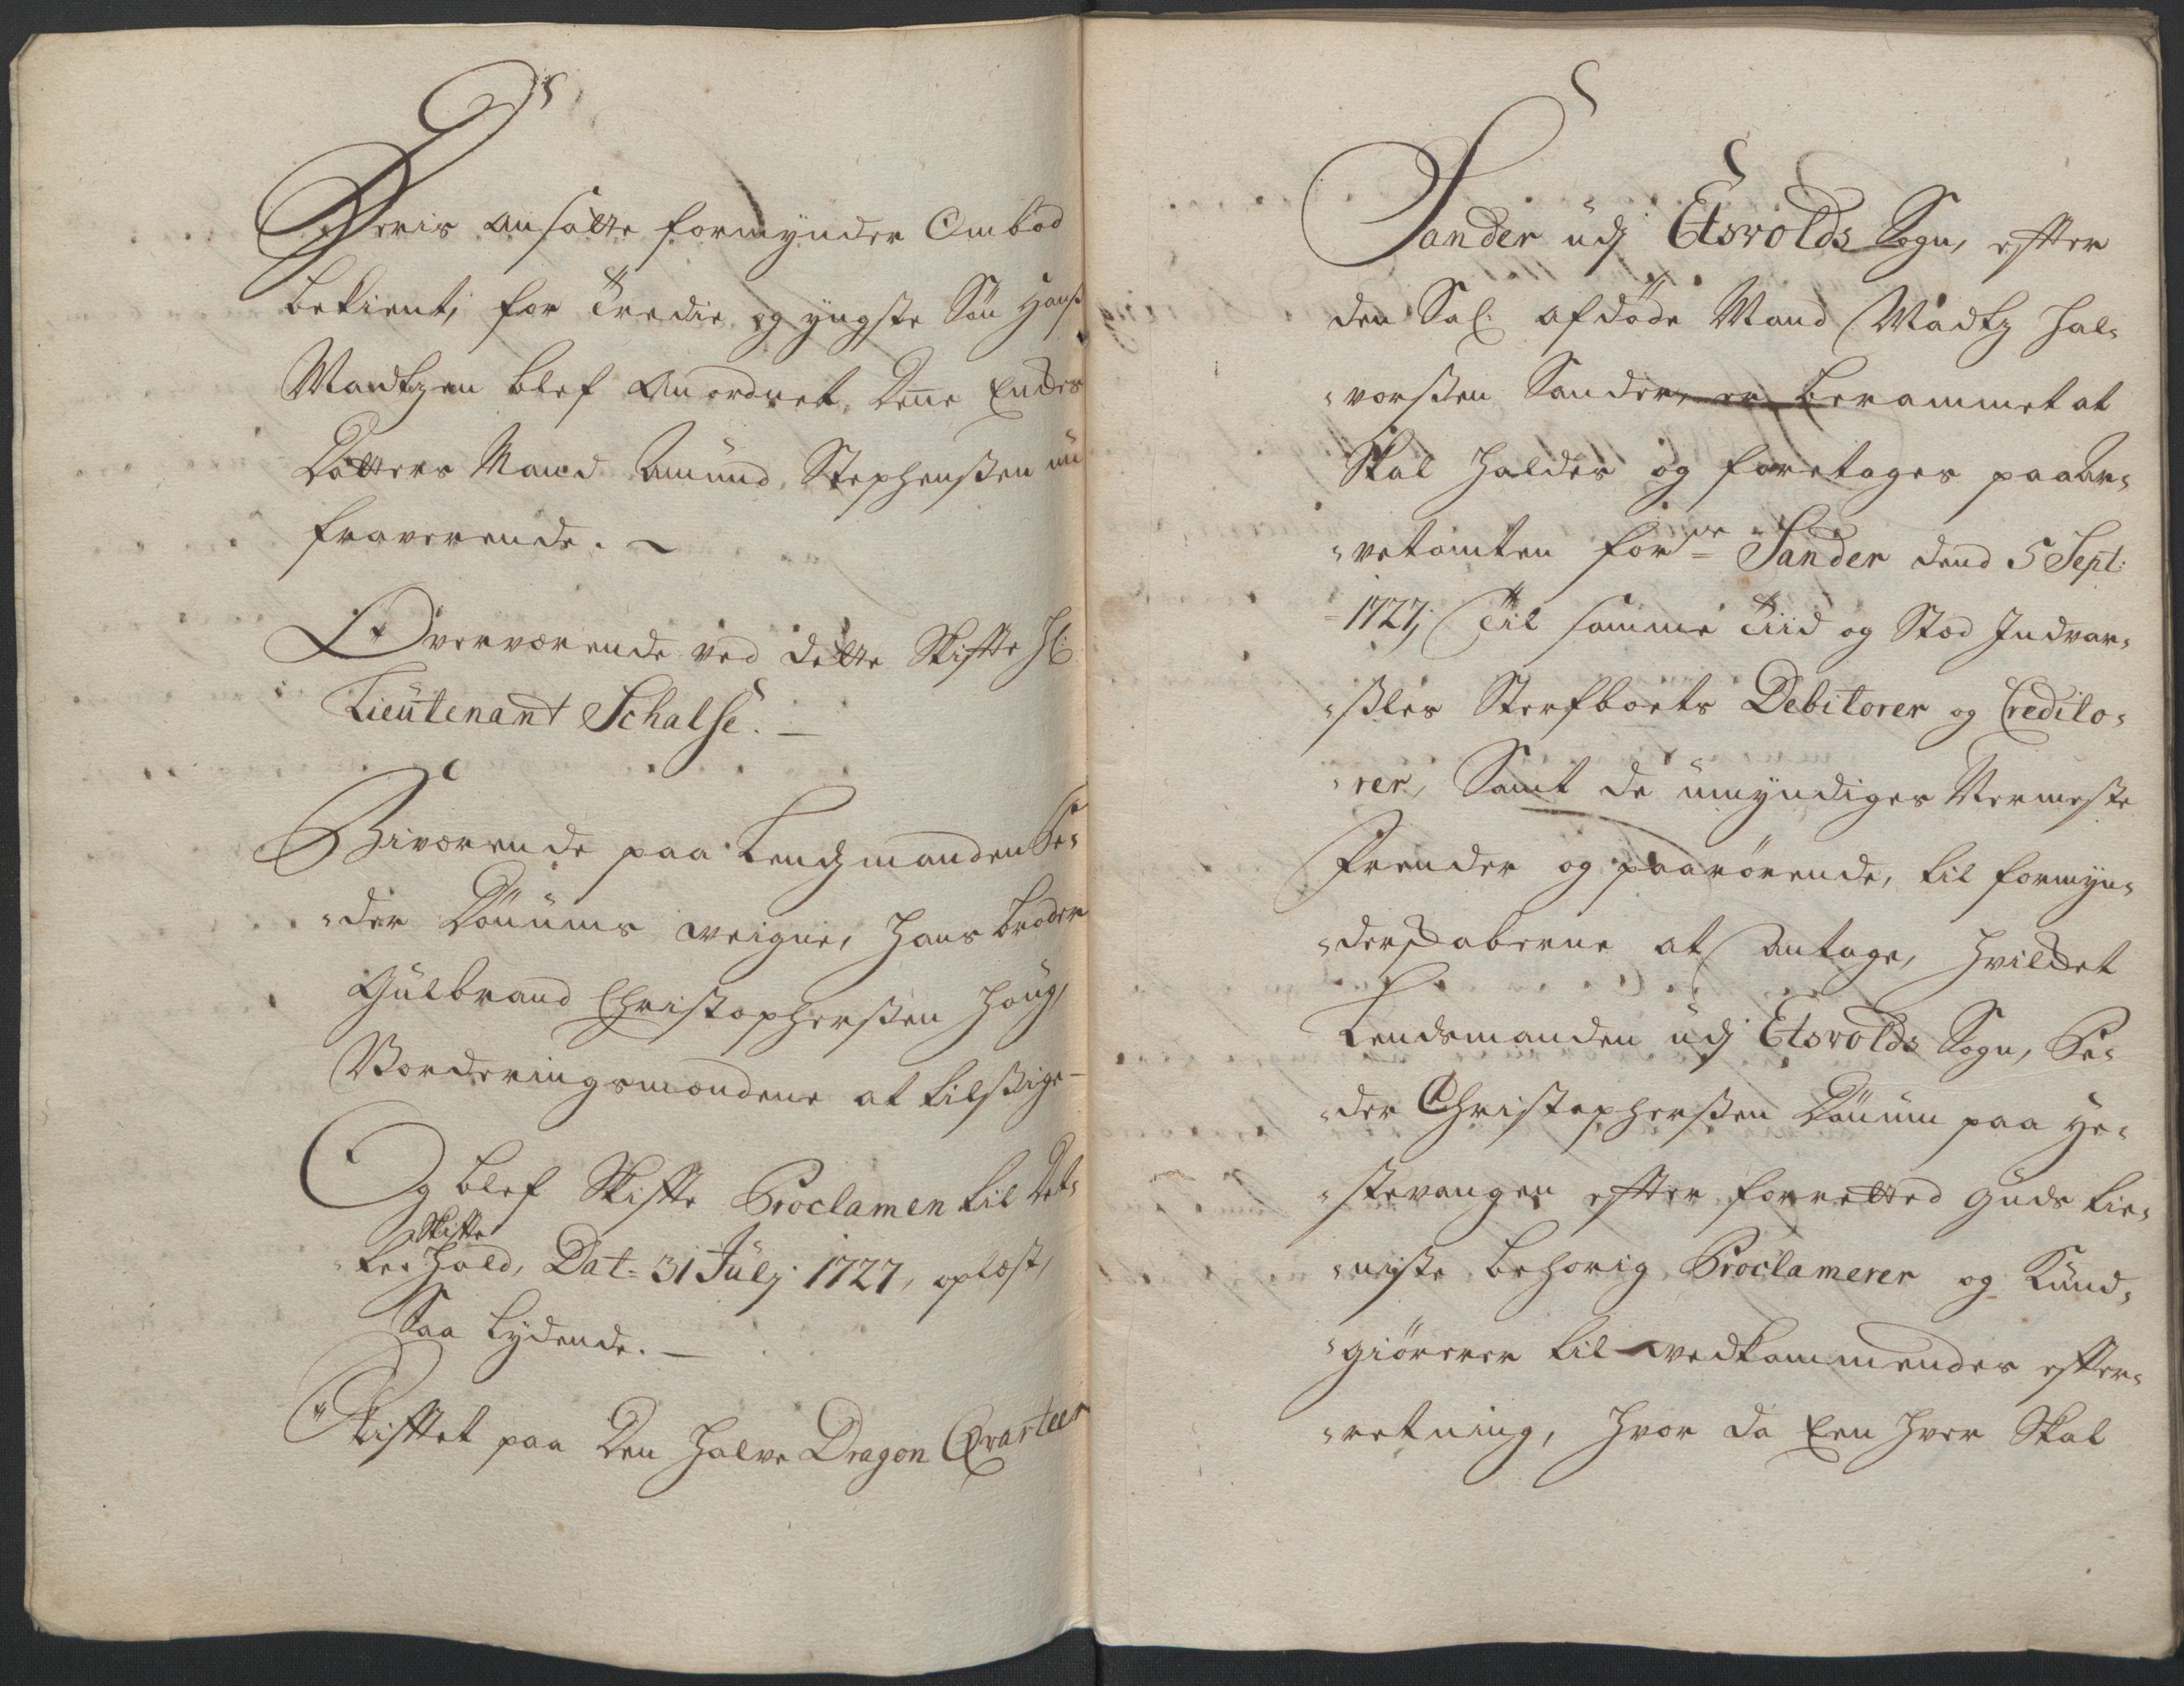 Deris ansatte formynder Ombod
bekient, for Tredie og yngste Søn Hans
Madtzen blef Anordnet, Denne Endes
Dotters Mand Amund Stephenssen nu
fraverende. ~
Overværende ved dette Skiftte Hl:
Lieutenant Schalse. —
Biværende paa Lendzmanden Pe-
-der Dønnums veigne, Hans broder
Gulbrand Christopherssen Houg,
Vorderingsmændene at tilssige —
Og blef Skiftte Proclamen til Det-
-te Skiftte Hold, Dat= 31 Julj 1727, oplæst,
Saa Lydende. —
Skifftet paa Den halve Dragon Qvarteer
Sander udj Edsvolds Sogn, effter
den Sal: afdøde Mand Madtz Hal-
-vorssen Sander, er berammet at
Skal Holdes og foretages paa Ar-
-vetomten forne Sander dend 5 Sept:
1727, Til samme Tiid og Stæd Indvar-
-ssles Sterfboets Debitorer og Credito-
-rer, Samt de umyndiges Nermeste
Frender og paarørende, til formyn-
-derskaberne at Antage, Hvilcket
Lendsmanden udj Edsvolds Sogn, Pe-
-der Christopherssen Dønnum paa He-
-stevangen effter forretted Guds tie-
-niste behørig Proclamerer og Kund-
-giørerer til vedkommendes effter-
-retning, Hvor da Een hver Skal